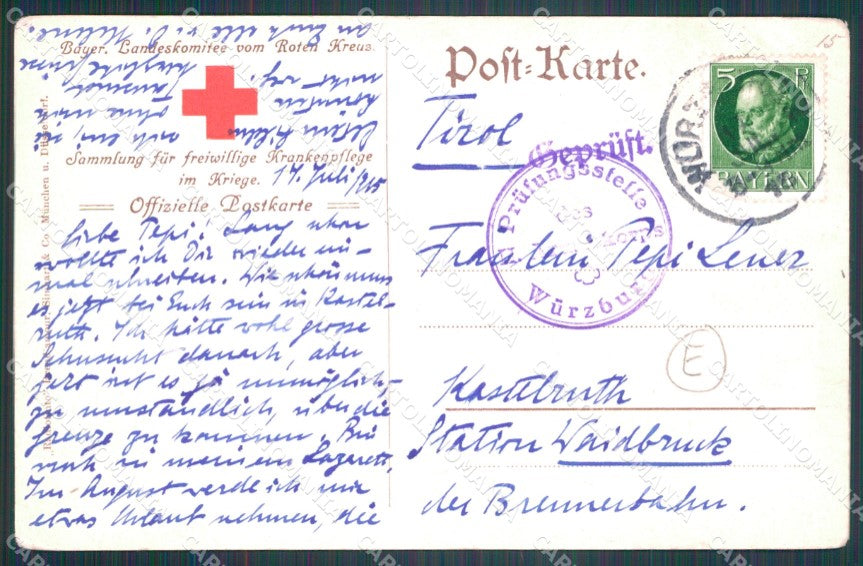 Bayer. Landeskomitee vom Roten Kreuz
Sammlung für freiwillige Krankenpflege
im Kriege. 17. Juli 1915
Offizielle Postkarte
Liebe Pepi. Lang schon
wollte ich Dir wieder ein-
mal schreiben. Wie schön muss
es jetzt bei Euch sein in Kastel-
ruth. Ich hätte wohl grosse
Sehnsucht danach, aber
jetzt ist es ja unmöglich,
zu umständlich, über die
Grenze zu kommen. Bin
noch in meinem Lazarett.
Im August werde ich mir
etwas Urlaub nehmen, die
letzten
ohne mich
nicht
an Euch alle v. D. Helene.
Post-Karte.
Tirol
Geprüft.
Prüfungsstelle
des
Korps
Würzburg
5 Pf
BAYERN
Fräulein Pepi Lener
Kastelruth
Station Waidbruck
der Brennerbahn.
E
15
CARTOLINOMANIA